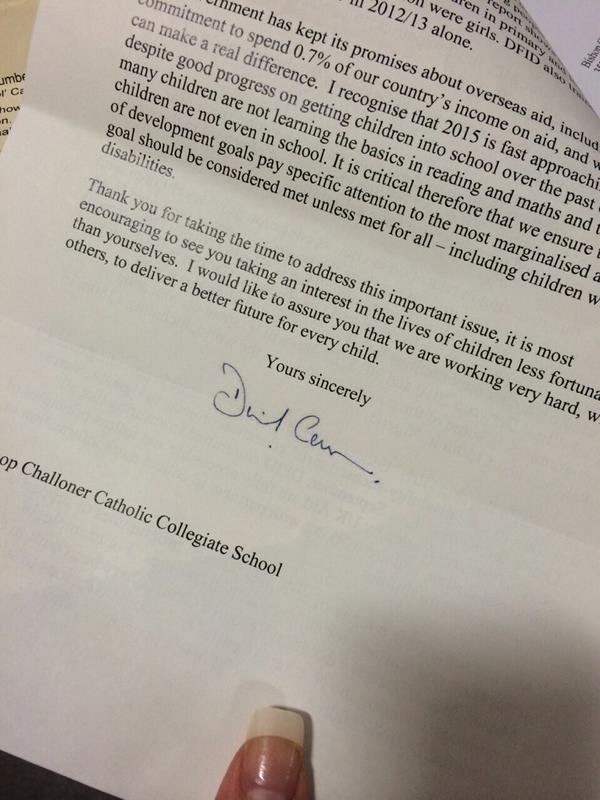 report show
ren in primary and
on were girls. DFID also
in 2012/13 alone.
ernment has kept its promises about overseas aid, includ
commitment to spend 0.7% of our country's income on aid, and w
can make a real difference. I recognise that 2015 is fast approachi
despite good progress on getting children into school over the past
many children are not learning the basics in reading and maths and
children are not even in school. It is critical therefore that we ensure
of development goals pay specific attention to the most marginalised a
goal should be considered met unless met for all – including children w
disabilities.
Thank you for taking the time to address this important issue, it is most
encouraging to see you taking an interest in the lives of children less fortuna
than yourselves. I would like to assure you that we are working very hard, w
others, to deliver a better future for every child.
Yours sincerely
op Challoner Catholic Collegiate School
umbe
how